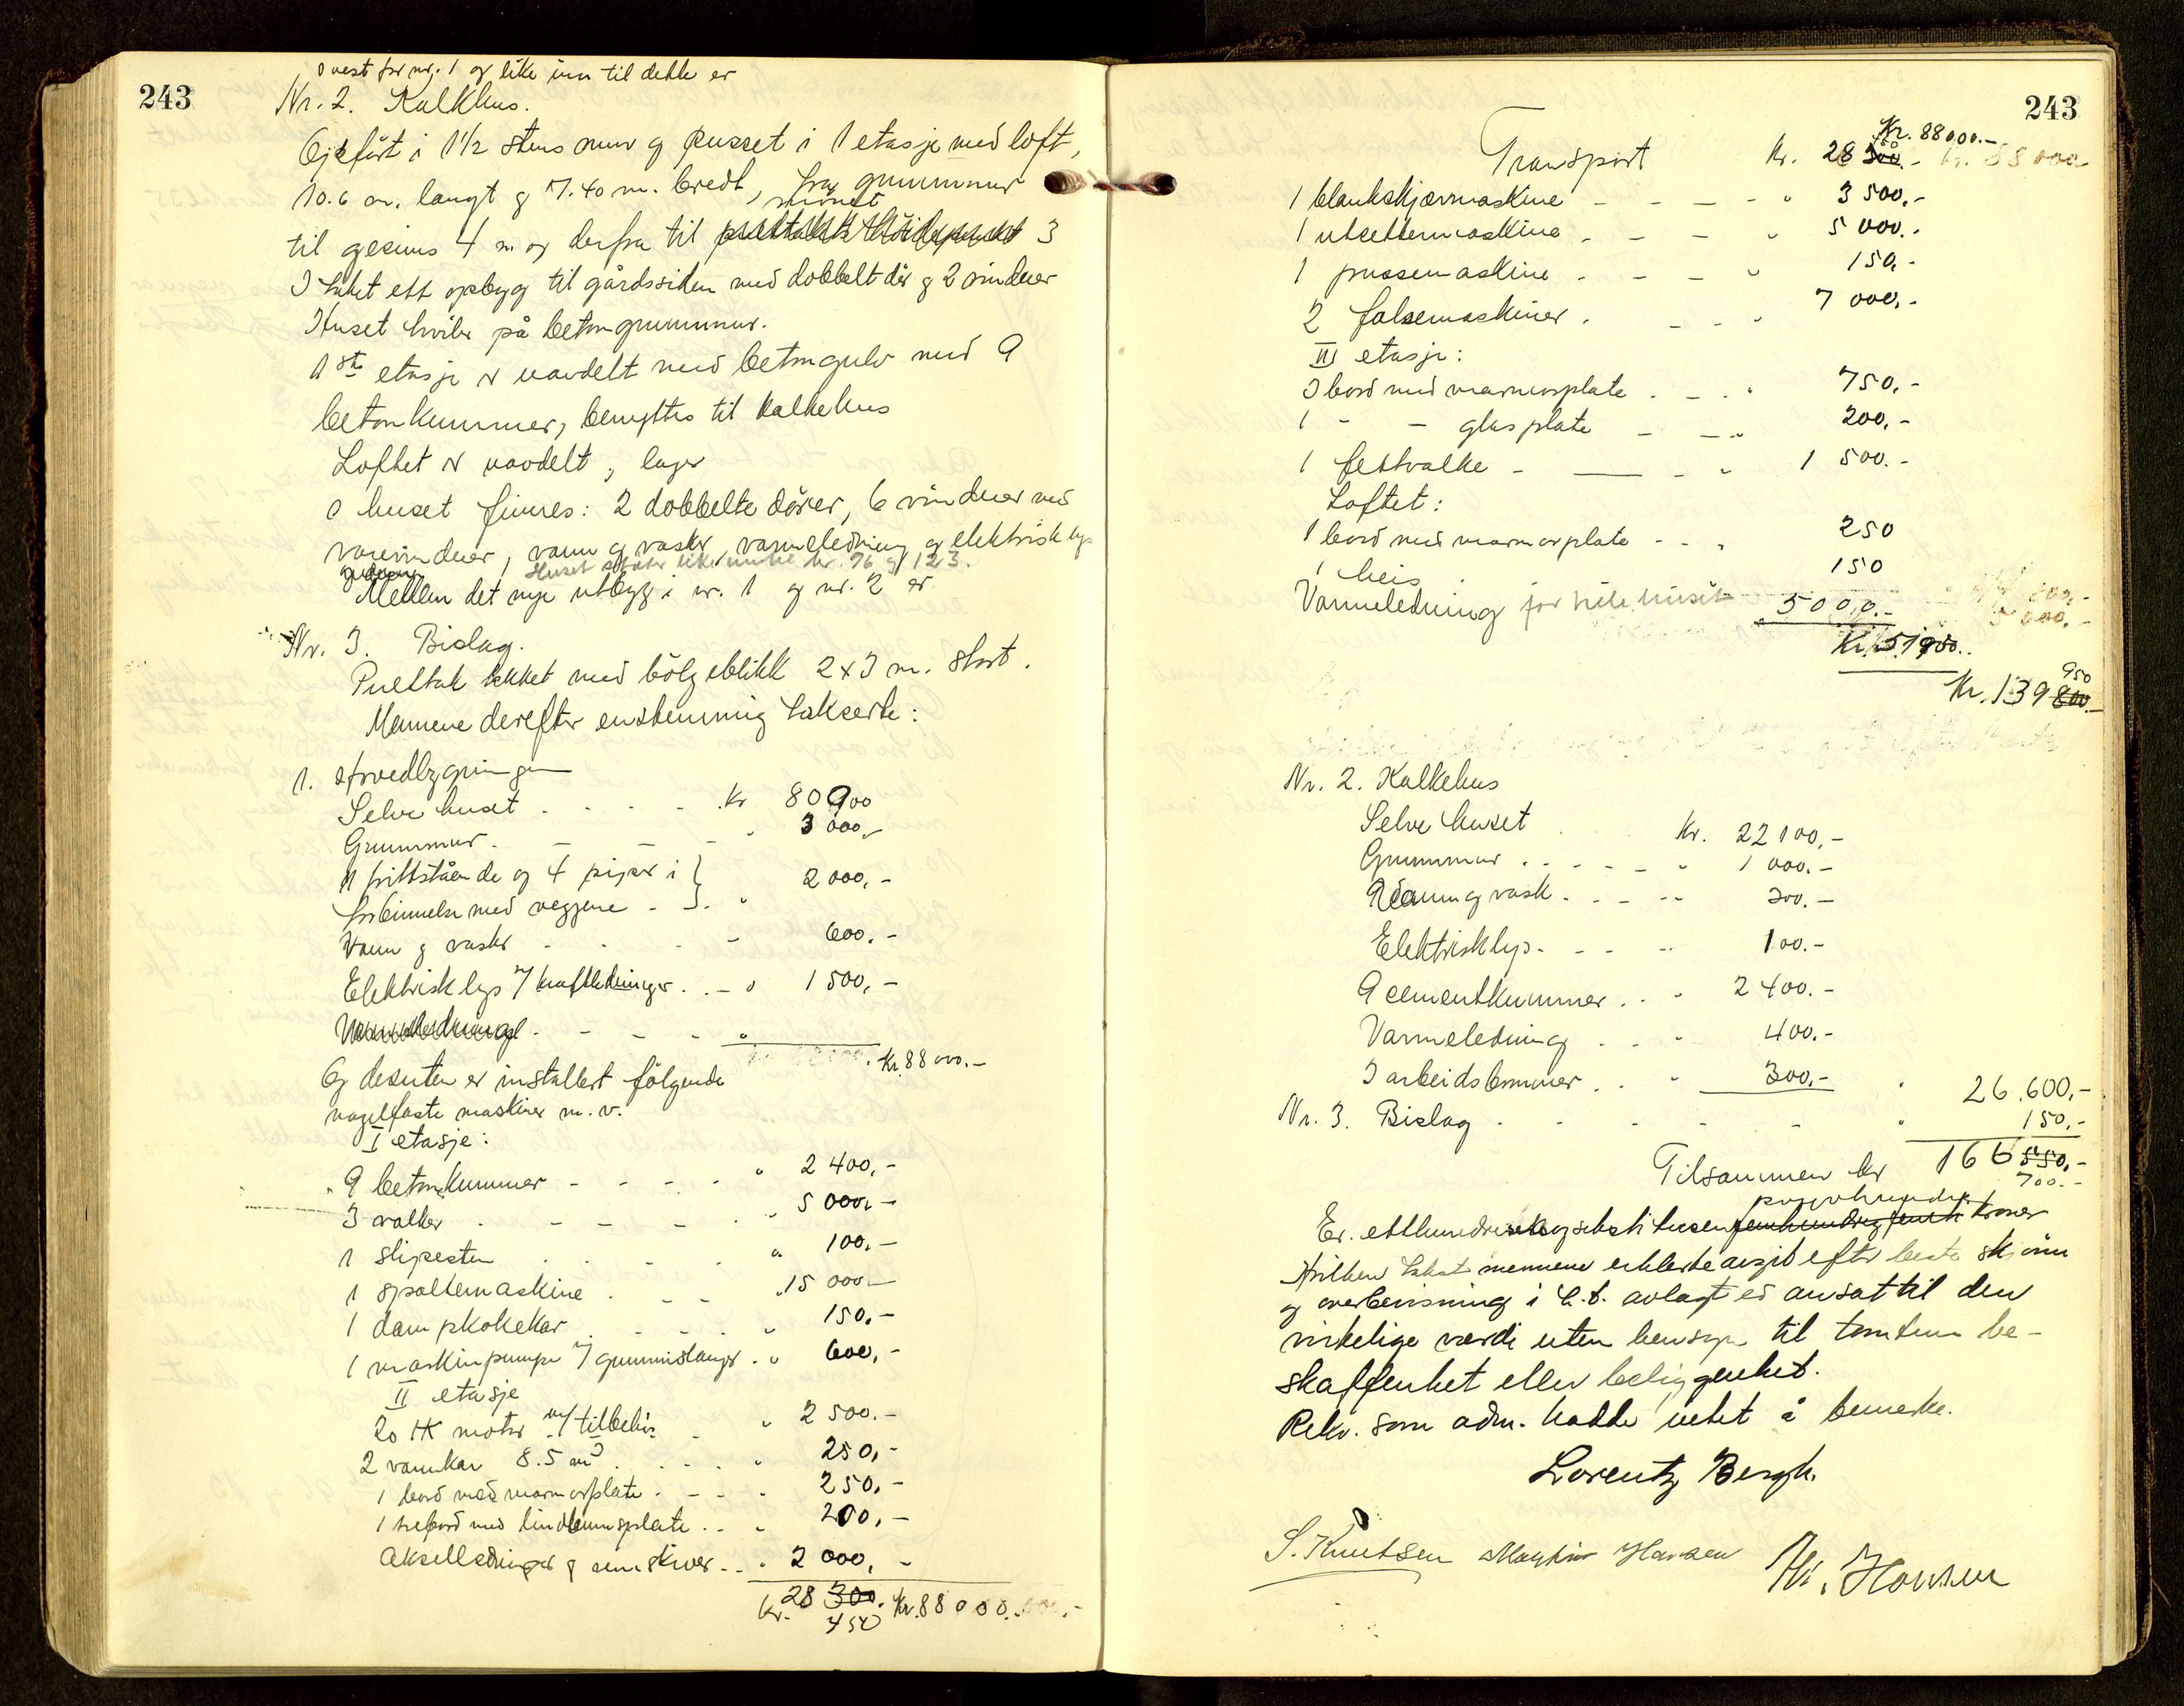 243
I vest for nr. 1 og like inn til dette er
Nr. 2. Kalkhus.
Opført i 1 1/2 stens mur og pusset i 1 etasje med loft,
10.6 m. langt og 7.40 m. bredt, fra grunnmur
til gesims 4 m og derfra til mønet 3
I taket ett opbygg til gårdssiden med dobbelt dør og 2 vinduer
Huset hviler på betongrunnmur.
1ste etasje er uavdelt med betongulv med 9
betonkummer, benyttes til kalkehus
Loftet er uavdelt, lager
I huset finnes: 2 dobbelte dører, 6 vinduer med
varevinduer, vann og vask, varmeledning og elektrisk lys
Huset støter like inntil nr. 76 og 123.
Mellem det nye utbygg i nr. 1 og nr. 2 er
Nr. 3. Bislag.
Pulttak tekket med bölgeblikk 2 x 3 m. stort.
Mennene derefter enstemmig takserte:
1. Hovedbygningen
Selve huset . . . . Kr 80900
Grunnmur . - - - " 3 000,-
11 frittstående og 4 piper i }
forbinnelse med veggene - } . " 2 000,-
Vann og vask - . . - 600.-
Elektrisk lys m/ kraftledninger . . - " 1 500,-
Varmeledning . - - - "
Kr. 88 000.-
Og desuten er installert følgende
nagelfaste maskiner m. v.
I etasje:
9 betonkummer - - - - " 2 400,-
3 valker . - - - . " 5 000,-
1 slipesten . . . . " 100,-
1 spaltemaskine . - - " 15 000.-
1 dampkokekar . - - . " 150.-
1 maskinpumpe m/ gummislanger . " 600,-
II etasje
20 HK motor m/ tilbehør - " 2 500.-
2 vannkar 8.5 m3 . . . . " 250,-
1 bord med marmorplate . - - . 250.-
1 trebord med linoleumsplate . . " 200,-
Akselledninger og remskiver - . . " 2 000,-
Kr. 28 300. Kr. 88 000.
450
243
Kr. 88000.-
Transport Kr. 28 300.-
1 blankskjærmaskine - - - - " 3 500,-
1 utsettermaskine . - - " 5 000.-
1 pussemaskine . - - " 150,-
2 falsemaskiner . - - " 7 000,-
III etasje:
3 bord med marmorplate . - . " 750,-
1 - - glasplate - - " 200,-
1 fettvalke - - - " 1 500.-
Loftet:
1 bord med marmorplate - - " 250
1 heis . 150
Varmeledning for hele huset 5000,-
Kr. 51950..
950
Kr. 139 800.-
Nr. 2. Kalkehus
Selve huset . Kr. 22 100,-
Grunnmur . . - - - " 1 000.-
Vann og vask . - - - - 300.-
Elektrisk lys - - - - 100.-
9 cementkummer . . " 2 400.-
Varmeledning . . " 400.-
3 arbeidsbommer . . " 300,- " 26.600,-
Nr. 3. Bislag - - - - - " 150,-
Tilsammen kr 166 550,-
700.-
Er. etthundreogsekstisekstusenfemhundreogfemti kroner
Hvilken takst mennene erklærte avgit efter beste skjønn
og overbevisning i h. t. avlagt ed ansat til den
virkelige værdi uten hensyn til tomtens be-
skaffenhet eller beliggenhet.
Rekv. som adm. hadde intet å bemerke.
Lorentz Bergh.
S. Knutsen Hansen Hansen